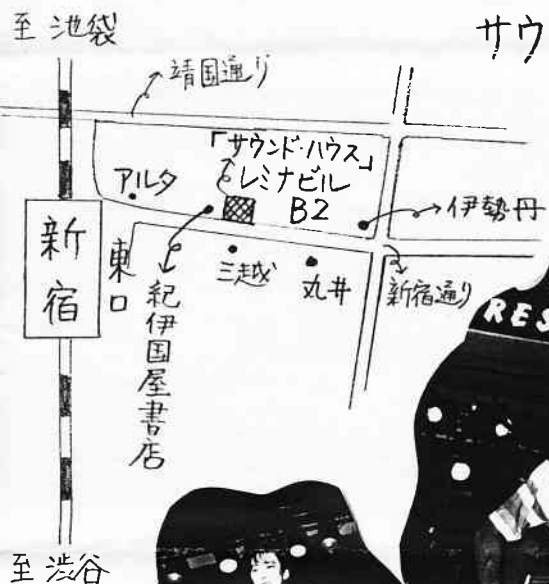 至池袋
サウ
靖国通り
「サウンド・ハウス」
レミナビル
B2
アルタ
伊勢丹
新宿
東口
紀伊国屋書店
三越
丸井
新宿通り
RES
至渋谷